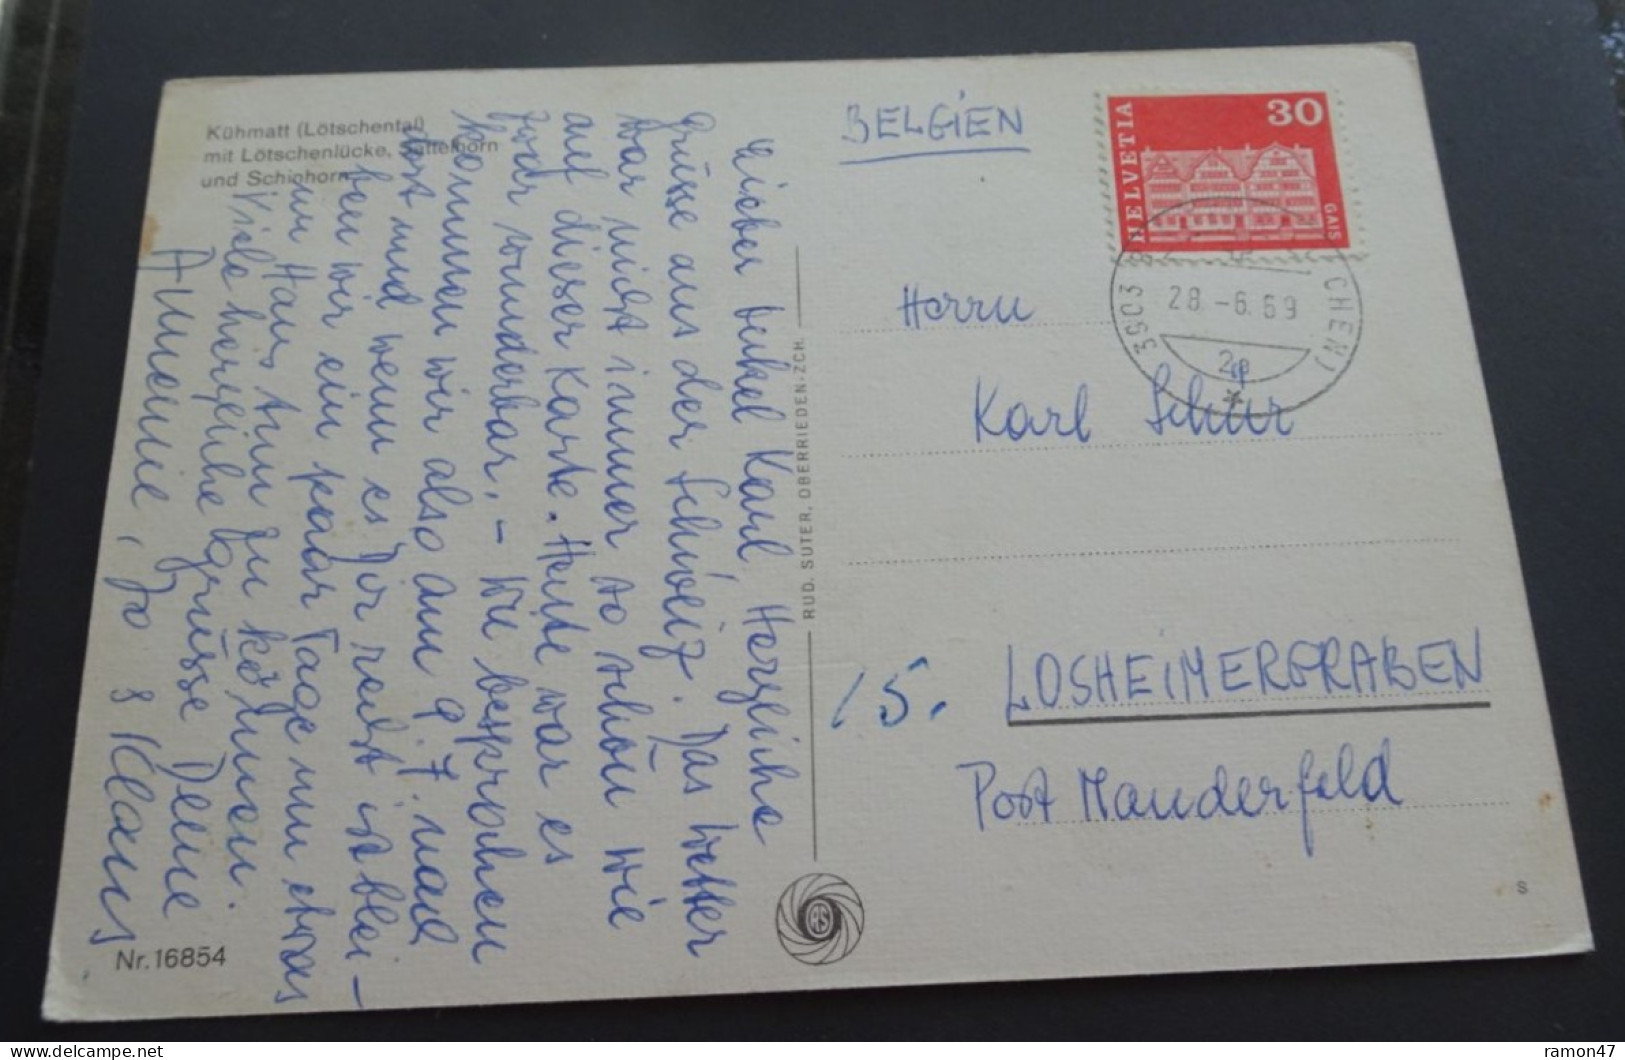 Kühmatt (Lötschental)
mit Lötschenlücke, Sattelhorn
und Schinhorn
Lieber Onkel Karl, Herzliche
Grüsse aus der Schweiz. Das Wetter
war nicht immer so schön wie
auf dieser Karte. Heute war es
zwar wunderbar. - Wie besprochen
kommen wir also am 9.7. nach
dort und wenn es Dir recht ist blei-
ben wir ein paar Tage um etwas
am Haus tun zu können.
Viele herzliche Grüsse Deine
Annemie, Jo & Klaus
Nr. 16854
RUD. SUTER, OBERRIEDEN-ZCH.
RS
BELGIEN
HELVETIA
30
GAIS
3903
CHEN)
28.-6.69
Herrn
Karl Schür
15.
LOSHEIMERGRABEN
Post Manderfeld
S
ramon47